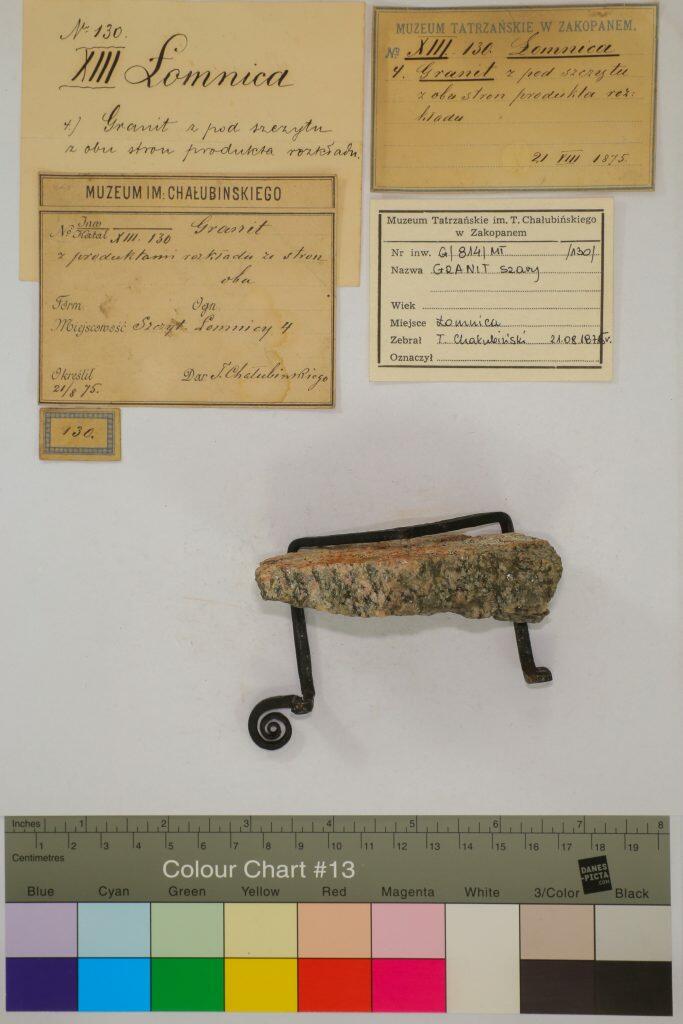 No 130.
XIII Łomnica
4) Granit z pod szczytu
z obu stron produkta rozkładu.
MUZEUM TATRZAŃSKIE W ZAKOPANEM.
No XIII 130. Łomnica
4. Granit z pod szczytu
z obu stron produkta roz-
kładu
21 VIII 1875.
MUZEUM IM. CHAŁUBIŃSKIEGO
No Inw Katal XIII. 130 Granit
z produktami rozkładu ze stron
obu
Form. Ogn.
Miejscowość Szczyt Łomnicy 4
Określił Dar T. Chałubińskiego
21/8 75.
130.
Muzeum Tatrzańskie im. T. Chałubińskiego
w Zakopanem
Nr inw. G/814/MT /130/
Nazwa GRANIT szary
Wiek
Miejsce Łomnica
Zebrał T. Chałubiński 21.08.1875r.
Oznaczył
Inches 1 2 3 4 5 6 7 8
1 2 3 4 5 6 7 8 9 10 11 12 13 14 15 16 17 18 19
Centimetres
Colour Chart #13
DANES
-PICTA
.COM
Blue Cyan Green Yellow Red Magenta White 3/Color Black